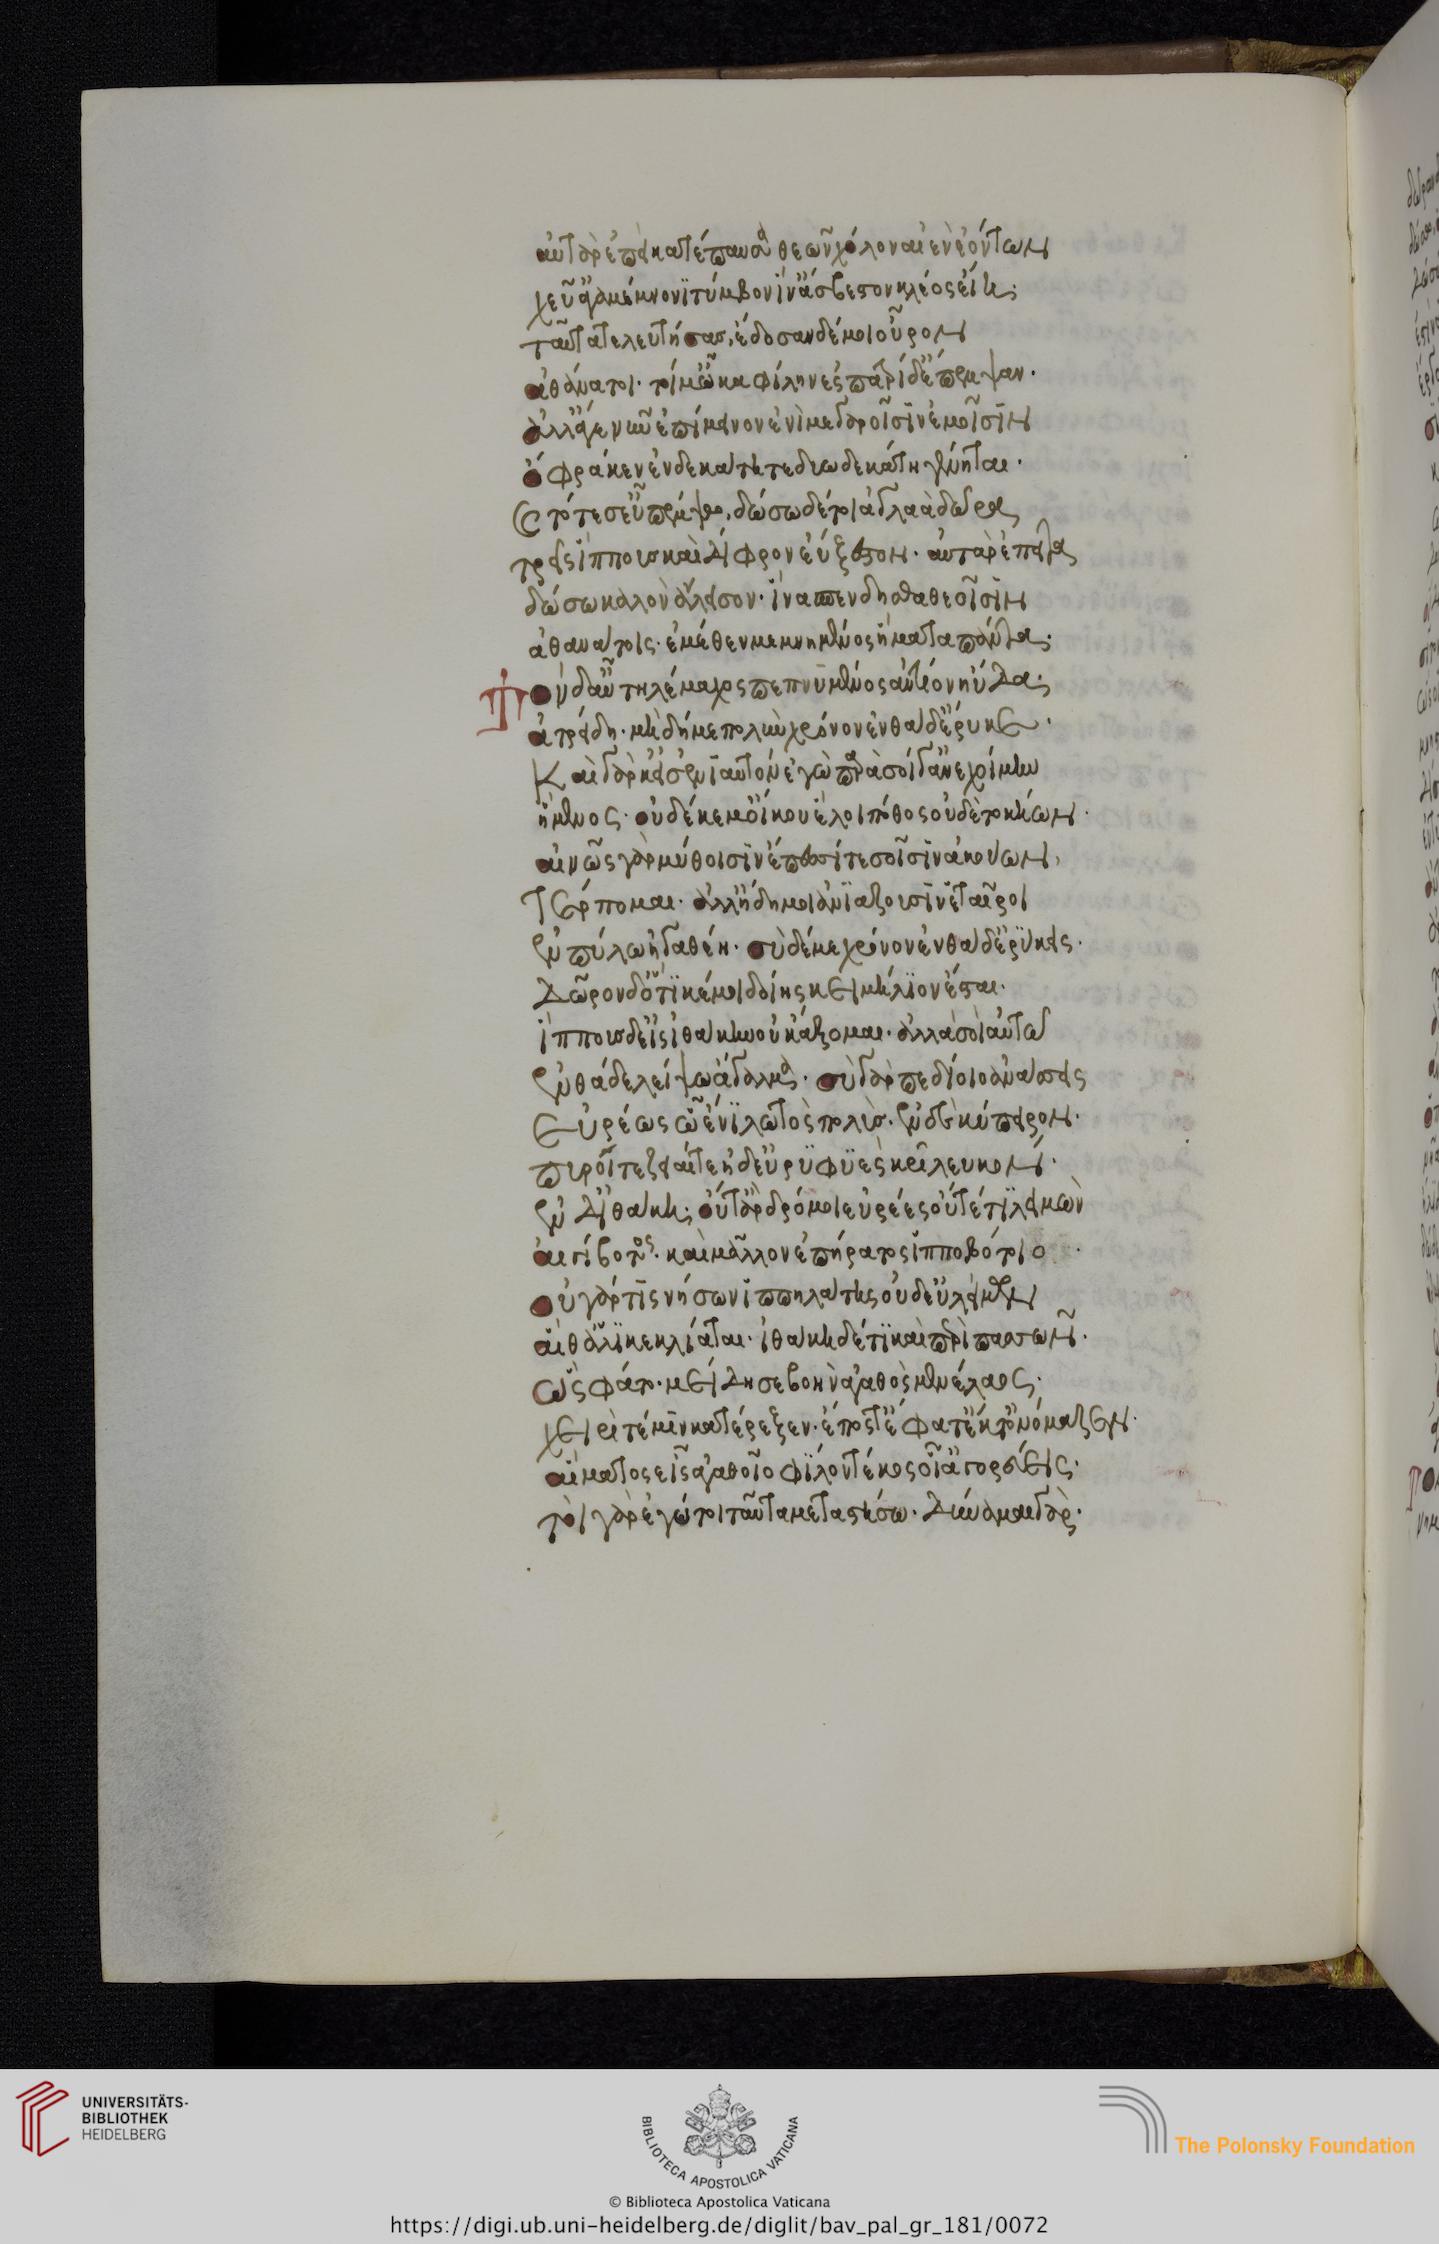 αὐτὰρ ἐπεὶ κατέπαυσα θεῶν χόλον αἰὲν ἐόντων
χεῦ ἀγαμέμνονι τύμβον ἵν' ἄσβεστον κλέος εἴη·
ταῦτα τελευτήσας, ἔδοσαν δέ μοι οὖρον
ἀθάνατοι· τοί μ' ὦκα φίλην ἐς πατρίδ' ἔπεμψαν·
ἀλλ' ἄγε νῦν ἐπίμεινον ἐνὶ μεγάροισιν ἐμοῖσιν
ὄφρά κεν ἑνδεκάτη τε δυωδεκάτη γένηται·
Καὶ τότε σ' εὖ πέμψω, δώσω δέ τοι ἀγλαὰ δῶρα
τρεῖς ἵππους καὶ δίφρον ἐΰξοον· αὐτὰρ ἔπειτα
δώσω καλὸν ἄλεισον· ἵνα σπένδησθα θεοῖσιν
ἀθανάτοις· ἐμέθεν μεμνημένος ἤματα πάντα·
Τὸν δ' αὖ τηλέμαχος πεπνυμένος ἀντίον ηὔδα·
ἀτρείδη· μὴ δή με πολὺν χρόνον ἐνθάδ' ἔρυκε·
Καὶ γάρ κ' εἰς ἐνιαυτὸν ἐγὼ παρὰ σοί γ' ἀνεχοίμην
ἥμενος· οὐδέ κέ μ' οἴκου ἕλοι πόθος οὐδὲ τοκήων·
αἰνῶς γὰρ μύθοισιν ἔπεσσί τε σοῖσιν ἀκούων,
Τέρπομαι· ἀλλ' ἤδη μοι ἀνιάζουσιν ἑταῖροι
ἐν πύλω ἠγαθέη· σὺ δέ με χρόνον ἐνθάδ' ἐρύκεις·
Δῶρον δ' ὅττι κέ μοι δοίης κειμήλιον ἔσται·
ἵππους δ' εἰς ἰθάκην οὐκ ἄξομαι· ἀλλὰ σοὶ αὐτῶ
ἐνθάδε λείψω ἄγαλμα· σὺ γὰρ πεδίοιο ἀνάσσεις
Εὐρέως ὧ ἔνι λωτὸς πολὺς· ἐν δὲ κύπειρον·
πυροί τε ζειαί τε ἠδ' εὐρυφυὲς κρῖ λευκόν·
ἐν δ' ἰθάκη· οὔτ' ἂρ δρόμοι εὐρέες οὔτέ τι λειμὼν
αἰγίβοτος· καὶ μᾶλλον ἐπήρατος ἱπποβότοιο·
οὐ γάρ τις νήσων ἱππήλατος οὐδ' εὐλείμων
αἵ θ' ἁλὶ κεκλίαται· ἰθάκη δέ τι καὶ περὶ πασῶν·
ὣς φάτο· μείδησε βοὴν ἀγαθὸς μενέλαος·
χειρί τέ μιν κατέρεξεν· ἔπος τ' ἔφατ' ἔκ τ' ὀνόμαζεν·
αἵματος εἶς ἀγαθοῖο φίλον τέκος οἷ' ἀγορεύεις·
τοὶ γὰρ ἐγώ τοι ταῦτα μεταστήσω· δύναμαι γάρ·
UNIVERSITÄTS-
BIBLIOTHEK
HEIDELBERG
BIBLIOTECA APOSTOLICA VATICANA
The Polonsky Foundation
© Biblioteca Apostolica Vaticana
https://digi.ub.uni-heidelberg.de/diglit/bav_pal_gr_181/0072